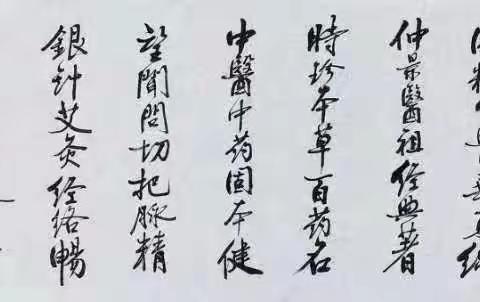 仲景醫祖经典著
時珍本草百药名
中醫中药固本健
望聞問切把脈精
銀针艾灸经络暢